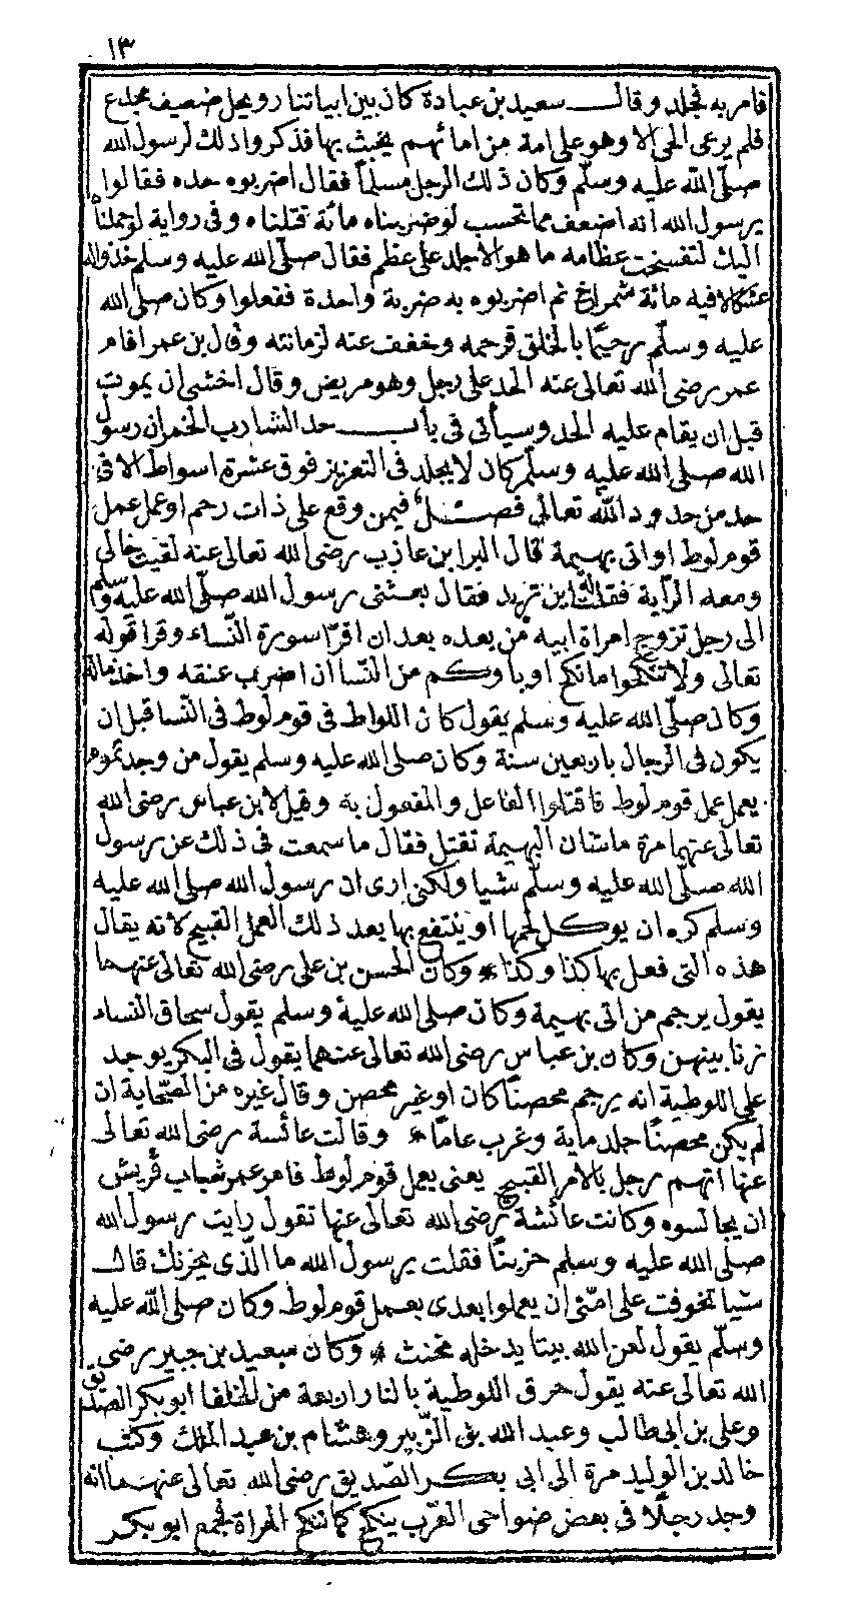 ١٣
فامر به فجلد وقال سعيد بن عبادة كان بين ابياتنا رويجل ضعيف مخدع
فلم يرعى الحى الا وهو على امة من امائهم يخبث بها فذكروا ذلك لرسول الله
صلى الله عليه وسلم وكان ذلك الرجل مسلما فقال اضربوه حده فقالوا
يرسول الله انه اضعف مما تحسب لو ضربناه مائة قتلناه وفى رواية لو حملناه
اليك لتفسخت عظامه ما هو الا جلد على عظم فقال صلى الله عليه وسلم خذوا له
عثكالا فيه مائة شمراخ ثم اضربوه به ضربة واحدة ففعلوا وكان صلى الله
عليه وسلم رحيما بالخلق فرحمه وخفف عنه لزمانته وقال بن عمر اقام
عمر رضى الله تعالى عنه الحد على رجل وهو مريض وقال اخشى ان يموت
قبل ان يقام عليه الحد وسيأتى فى باب حد الشارب الخمر ان رسول
الله صلى الله عليه وسلم كان لا يجلد فى التعزيز فوق عشرة اسواط الا فى
حد من حدود الله تعالى فصل فيمن وقع على ذات رحم او عمل عمل
قوم لوط او اتى بهيمة قال البرا بن عازب رضى الله تعالى عنه لقيت خالى
ومعه الراية فقلت له اين تريد فقال بعثنى رسول الله صلى الله عليه وسلم
الى رجل تزوج امراة ابيه من بعده بعد ان اقرا سورة النساء وقرا قوله
تعالى ولا تنكحوا ما نكح اوباوكم من النسا ان اضرب عنقه واخذ ماله
وكان صلى الله عليه وسلم يقول كان اللواط فى قوم لوط فى النسا قبل ان
يكون فى الرجال باربعين سنة وكان صلى الله عليه وسلم يقول من وجدتموه
يعمل عمل قوم لوط فاقتلوا الفاعل والمفعول به وقيل لابن عباس رضى الله
تعالى عنهما مرة ما شان البهيمة تقتل فقال ما سمعت فى ذلك عن رسول
الله صلى الله عليه وسلم شيا ولكنى ارى ان رسول الله صلى الله عليه
وسلم كره ان يوكل لحمها او ينتفع بها بعد ذلك العمل القبيح لانه يقال
هذه التى فعل بها كذا وكذا * وكان الحسن بن على رضى الله تعالى عنهما
يقول يرجم من اتى بهيمة وكان صلى الله عليه وسلم يقول سحاق النساء
زنا بينهن وكان بن عباس رضى الله تعالى عنهما يقول فى البكر يوجد
على اللوطية انه يرجم محصنا كان او غير محصن وقال غيره من الصحابة ان
لم يكن محصنا جلد ماية وغرب عاما * وقالت عائسة رضى الله تعالى
عنها اتهم رجل بالامر القبيح يعنى يعمل قوم لوط فامر عمر شباب قريش
ان يجالسوه وكانت عائشة رضى الله تعالى عنها تقول رايت رسول الله
صلى الله عليه وسلم حزينا فقلت يرسول الله ما الذى يحزنك قال
شيا تخوفت على امتى ان يعملوا بعدى بعمل قوم لوط وكان صلى الله عليه
وسلم يقول لعن الله بيتا يدخله مخنث * وكان سعيد بن جبير رضى
الله تعالى عنه يقول حرق اللوطية بالنار اربعة من الخلفا ابو بكر الصديق
وعلى بن ابى طالب وعبد الله بن الزبير وهشام بن عبد الملك وكتب
خالد بن الوليد مرة الى ابى بكر الصديق رضى الله تعالى عنهما انه
وجد رجلا فى بعض ضواحى العرب ينكح كما تنكح المراة فجمع ابو بكر